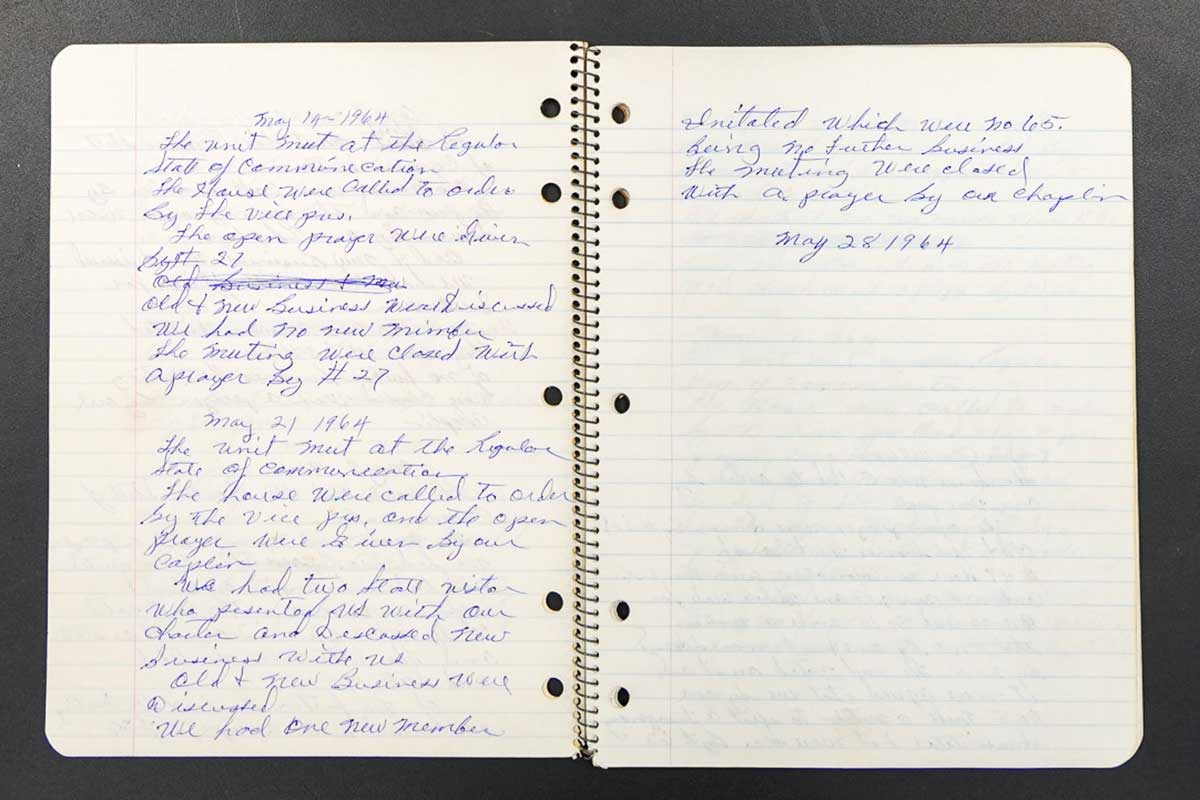 May 14-1964
The unit met at the Regular
State of Communecation
The House were Called to order
By the Vice pres.
The open prayer were Given
by# 27
Old Business & New
Old & New Business Were Discussed
We had no new mimber
The meeting were closed With
a prayer By # 27
May 21 1964
The unit met at the Regular
State of Communecation
The house were called to order
by the Vice pres, and the open
prayer were Given By our
Caplin
We had two State vistor
who pesented us with our
Charter and Descussed new
business with us
Old & New Business Were
Discussed
We had one new member
Initated which were no 65.
Being no Futher Business
the meeting were closed
with a prayer by our Chaplin
May 28 1964